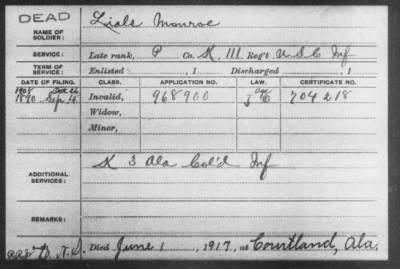 DEAD
NAME OF SOLDIER: Lisle Monroe
SERVICE: Late rank, P Co. K, 111 Reg't U S C Inf
TERM OF SERVICE: Enlisted , 1 Discharged , 1
DATE OF FILING. CLASS. APPLICATION NO. LAW. CERTIFICATE NO.
1908 Oct 26 Age
1890 Sep 4 Invalid, 968900 J 704218
Widow,
Minor,
ADDITIONAL SERVICES: K 3 Ala Col'd Inf
REMARKS:
Died June 1, 1917, at Courtland, Ala.